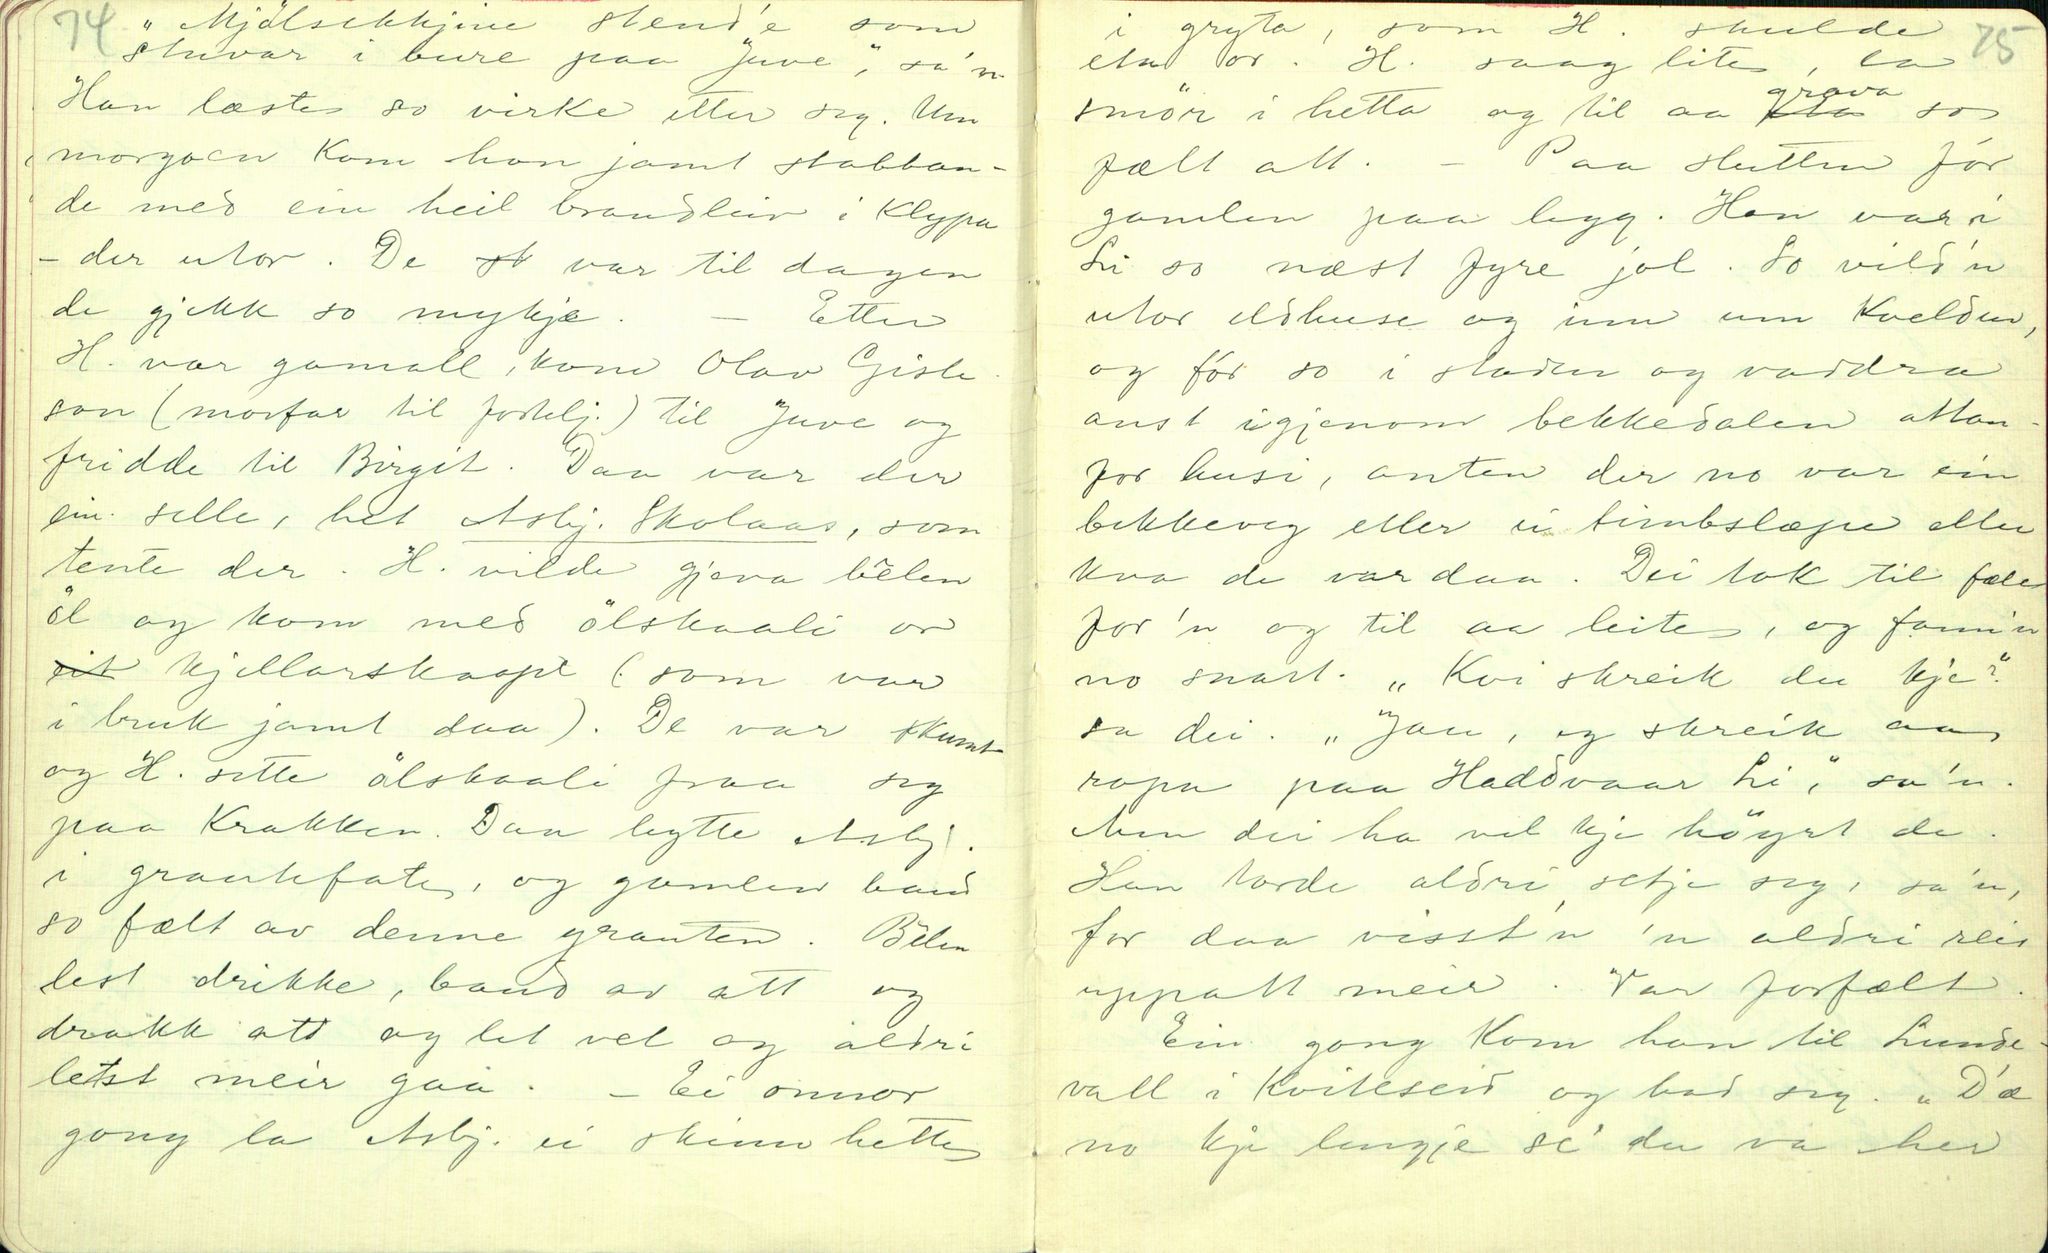 74
"Mjölsekkjine stend'e som
stuvar i bure paa Juve", sa'n.
Han læste so virke etter seg. Um
morgoen kom han jamt stabban-
de med ein heil brandleiv i klypa
- der utor. De var til dagen
de gjekk so mykje. — Etter
H. var gamall, kom Olav Gisle-
son (morfar til fortelj.) til Juve og
fridde til Birgit. Daa var der
ein selle, het Asbj. Skolaas, som
tente der. H. vilde gjeva bêlen
öl og kom med ölskaali or
eit kjellarskaape (som var
i bruk jamt daa). De var skumt
og H. sette ölskaali fraa seg
paa krakken. Daa bytte Asbj.
i grautfate, og gamlen baud
so fælt av denne grauten. Bêlen
lest drikke, baud av att og
drakk att og let vel og aldri
letst meir gaa. — Ei onnor
gong la Asbj. ei skinnhette
75
i gryta, som H. skulde
eta or. H. saag lite, la
smör i hetta og til aa eta grava so
fælt att. — Paa slutten för
gamlen paa legg. Han var i
Li so næst fyre jol. So vild'n
utor eldhuse og inn um kvelden,
og för so i staden og vaddra
aust igjenom bekkedalen attan-
for husi, anten der no var ein
bekkeveg eller ei timbslæpe eller
kva de var daa. Dei tok til fæle
for'n og til aa leite, og fann'n
no snart. "Kvi skreik du kje?"
sa dei. "Jau, eg skreik aa
ropa paa Haddvaar Li," sa'n.
Men dei ha vel kje höyrt de.
Han torde aldri setje seg, sa'n,
for daa visst'n 'n aldri reis
uppatt meir. Var forfælt.
Ein gong kom han til Lunde-
vall i Kviteseid og bad seg. "D'æ
no kje lengje se' du va her